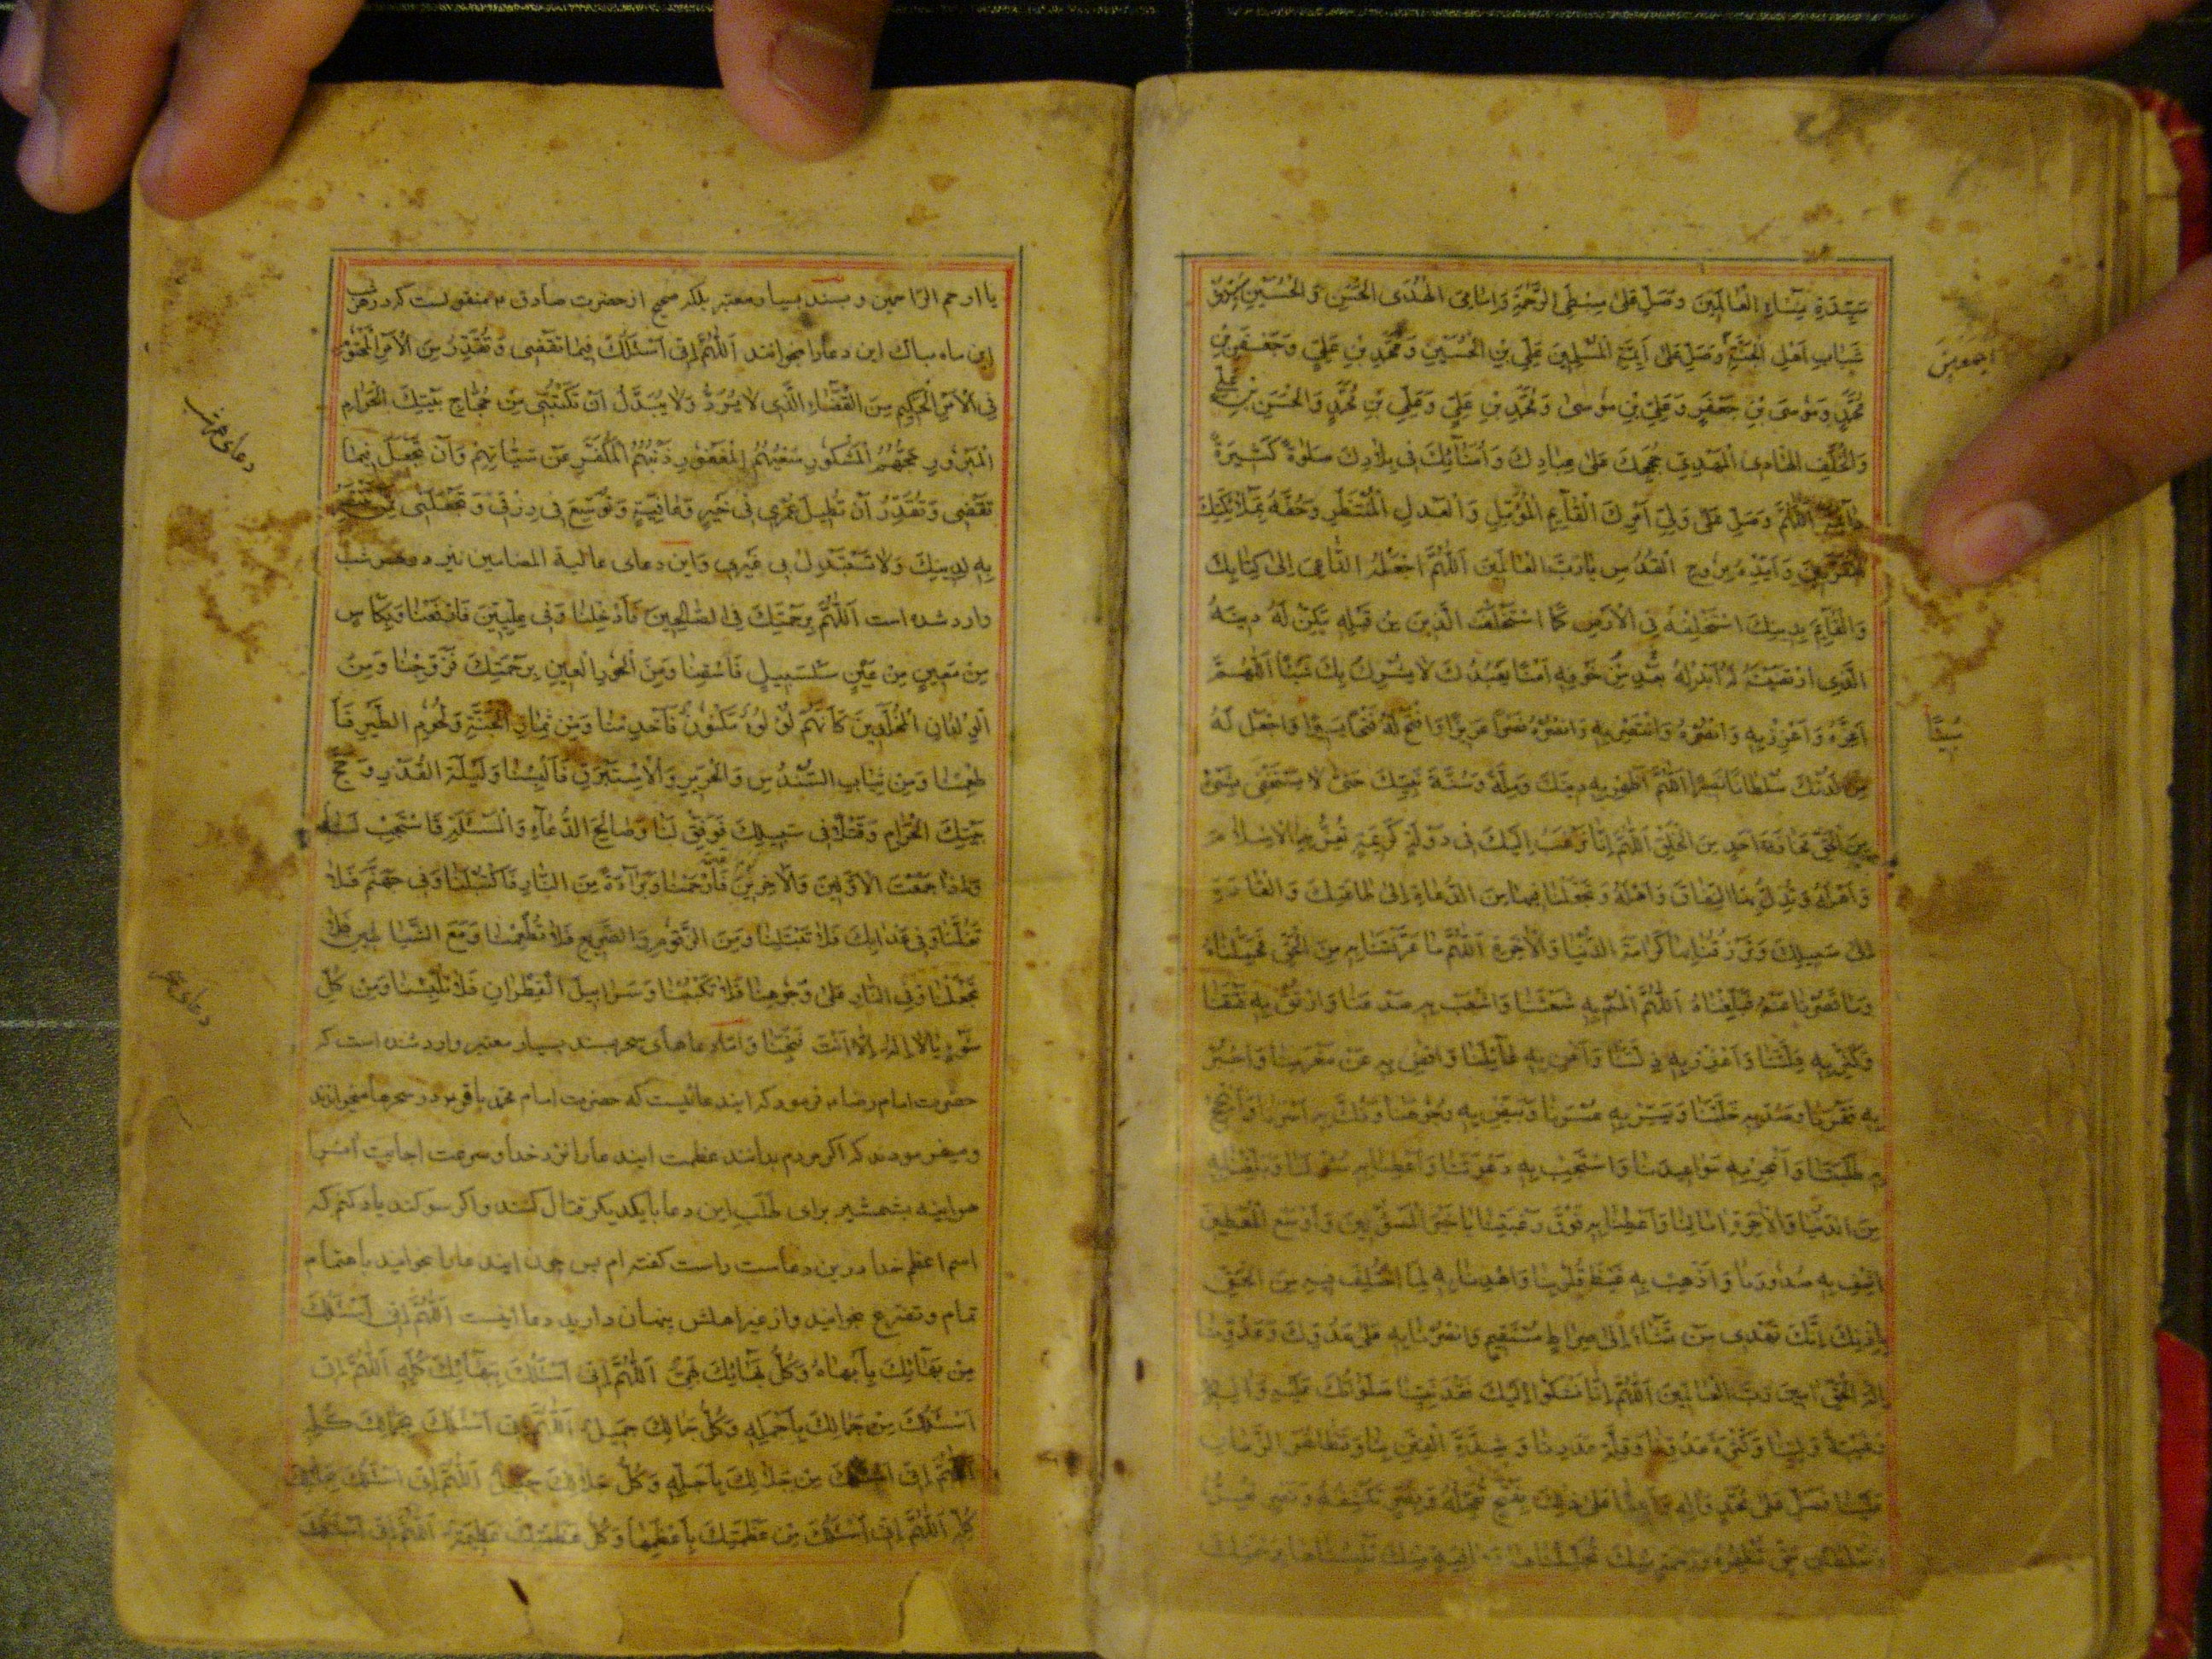 سَيِّدَةِ نِسَاءِ الْعَالَمِينَ وَصَلِّ عَلَى سِبْطَيِ الرَّحْمَةِ وَاِمَامَيِ الْهُدَى الْحَسَنِ وَالْحُسَيْنِ سَيِّدَيْ
شَبَابِ اَهْلِ الْجَنَّةِ وَصَلِّ عَلَى اَئِمَّةِ الْمُسْلِمِينَ عَلِيِّ بْنِ الْحُسَيْنِ وَمُحَمَّدِ بْنِ عَلِيٍّ وَجَعْفَرِ بْنِ
مُحَمَّدٍ وَمُوسَى بْنِ جَعْفَرٍ وَعَلِيِّ بْنِ مُوسَى وَمُحَمَّدِ بْنِ عَلِيٍّ وَعَلِيِّ بْنِ مُحَمَّدٍ وَالْحَسَنِ بْنِ عَلِيٍّ
وَالْخَلَفِ الْهَادِي الْمَهْدِيِّ حُجَجِكَ عَلَى عِبَادِكَ وَاُمَنَائِكَ فِي بِلَادِكَ صَلَوٰةً كَثِيرَةً
دَائِمَةً اَللّٰهُمَّ وَصَلِّ عَلَى وَلِيِّ اَمْرِكَ الْقَائِمِ الْمُؤَمَّلِ وَالْعَدْلِ الْمُنْتَظَرِ وَحُفَّهُ بِمَلَائِكَتِكَ
الْمُقَرَّبِينَ وَاَيِّدْهُ بِرُوحِ الْقُدُسِ يَا رَبَّ الْعَالَمِينَ اَللّٰهُمَّ اجْعَلْهُ الدَّاعِيَ اِلَى كِتَابِكَ
وَالْقَائِمَ بِدِينِكَ اسْتَخْلِفْهُ فِي الْاَرْضِ كَمَا اسْتَخْلَفْتَ الَّذِينَ مِنْ قَبْلِهِ مَكِّنْ لَهُ دِينَهُ
الَّذِي ارْتَضَيْتَهُ لَهُ اَبْدِلْهُ بَعْدَ مِنْ خَوْفِهِ اَمْنًا يَعْبُدُكَ لَا يُشْرِكُ بِكَ شَيْئًا اَللّٰهُمَّ
اَعِزَّهُ وَاَعْزِزْ بِهِ وَانْصُرْهُ وَانْتَصِرْ بِهِ وَانْصُرْهُ نَصْرًا عَزِيزًا وَافْتَحْ لَهُ فَتْحًا يَسِيرًا وَاجْعَلْ لَهُ
مِنْ لَدُنْكَ سُلْطَانًا نَصِيرًا اَللّٰهُمَّ اَظْهِرْ بِهِ دِينَكَ وَمِلَّةَ وَسُنَّةَ نَبِيِّكَ حَتَّى لَا يَسْتَخْفِيَ بِشَيْءٍ
مِنَ الْحَقِّ مَخَافَةَ اَحَدٍ مِنَ الْخَلْقِ اَللّٰهُمَّ اِنَّا نَرْغَبُ اِلَيْكَ فِي دَوْلَةٍ كَرِيمَةٍ تُعِزُّ بِهَا الْاِسْلَامَ
وَاَهْلَهُ وَتُذِلُّ بِهَا النِّفَاقَ وَاَهْلَهُ وَتَجْعَلُنَا فِيهَا مِنَ الدُّعَاةِ اِلَى طَاعَتِكَ وَالْقَادَةِ
اِلَى سَبِيلِكَ وَتَرْزُقُنَا بِهَا كَرَامَةَ الدُّنْيَا وَالْاٰخِرَةِ اَللّٰهُمَّ مَا عَرَّفْتَنَا بِهِ مِنَ الْحَقِّ فَحَمِّلْنَاهُ
وَمَا قَصُرْنَا عَنْهُ فَبَلِّغْنَاهُ اَللّٰهُمَّ الْمُمْ بِهِ شَعَثَنَا وَاشْعَبْ بِهِ صَدْعَنَا وَارْتُقْ بِهِ فَتْقَنَا
وَكَثِّرْ بِهِ قِلَّتَنَا وَاَعْزِزْ بِهِ ذِلَّتَنَا وَاَغْنِ بِهِ عَائِلَنَا وَاقْضِ بِهِ عَنْ مَغْرَمِنَا وَاجْبُرْ
بِهِ فَقْرَنَا وَسُدَّ بِهِ خَلَّتَنَا وَيَسِّرْ بِهِ عُسْرَنَا وَبَيِّضْ بِهِ وُجُوهَنَا وَفُكَّ بِهِ اَسْرَنَا وَاَنْجِحْ
بِهِ طَلِبَتَنَا وَاَنْجِزْ بِهِ مَوَاعِيدَنَا وَاسْتَجِبْ بِهِ دَعْوَتَنَا وَاَعْطِنَا بِهِ سُؤْلَنَا وَبَلِّغْنَا بِهِ
مِنَ الدُّنْيَا وَالْاٰخِرَةِ اٰمَالَنَا وَاَعْطِنَا بِهِ فَوْقَ رَغْبَتِنَا يَا خَيْرَ الْمَسْئُولِينَ وَاَوْسَعَ الْمُعْطِينَ
اِشْفِ بِهِ صُدُورَنَا وَاَذْهِبْ بِهِ غَيْظَ قُلُوبِنَا وَاهْدِنَا بِهِ لِمَا اخْتُلِفَ فِيهِ مِنَ الْحَقِّ
بِاِذْنِكَ اِنَّكَ تَهْدِي مَنْ تَشَاءُ اِلَى صِرَاطٍ مُسْتَقِيمٍ وَانْصُرْنَا بِهِ عَلَى عَدُوِّكَ وَعَدُوِّنَا
اِلٰهَ الْحَقِّ اٰمِينَ رَبَّ الْعَالَمِينَ اَللّٰهُمَّ اِنَّا نَشْكُو اِلَيْكَ فَقْدَ نَبِيِّنَا صَلَوَاتُكَ عَلَيْهِ وَاٰلِهِ
وَغَيْبَةَ وَلِيِّنَا وَكَثْرَةَ عَدُوِّنَا وَقِلَّةَ عَدَدِنَا وَشِدَّةَ الْفِتَنِ بِنَا وَتَظَاهُرَ الزَّمَانِ
عَلَيْنَا فَصَلِّ عَلَى مُحَمَّدٍ وَاٰلِهِ وَاَعِنَّا عَلَى ذٰلِكَ بِفَتْحٍ تُعَجِّلُهُ وَبِضُرٍّ تَكْشِفُهُ وَنَصْرٍ تُعِزُّهُ
وَسُلْطَانِ حَقٍّ تُظْهِرُهُ وَرَحْمَةٍ مِنْكَ تُجَلِّلُنَاهَا وَعَافِيَةٍ مِنْكَ تُلْبِسُنَاهَا بِرَحْمَتِكَ
اجمعین
يا ارحم الرّاحمين و بسند بسیار معتبر بلکه صحیح از حضرت صادق ع منقولست که در هر شب
این ماه مبارک این دعا را بخوانند اَللّٰهُمَّ اِنِّي اَسْئَلُكَ فِيمَا تَقْضِي وَتُقَدِّرُ مِنَ الْاَمْرِ الْمَحْتُومِ
فِي الْاَمْرِ الْحَكِيمِ مِنَ الْقَضَاءِ الَّذِي لَا يُرَدُّ وَلَا يُبَدَّلُ اَنْ تَكْتُبَنِي مِنْ حُجَّاجِ بَيْتِكَ الْحَرَامِ
الْمَبْرُورِ حَجُّهُمُ الْمَشْكُورِ سَعْيُهُمُ الْمَغْفُورِ ذَنْبُهُمُ الْمُكَفَّرِ عَنْ سَيِّئَاتِهِمْ وَاَنْ تَجْعَلَ فِيمَا
تَقْضِي وَتُقَدِّرُ اَنْ تُطِيلَ عُمْرِي فِي خَيْرٍ وَعَافِيَةٍ وَتُوَسِّعَ فِي رِزْقِي وَتَجْعَلَنِي مِمَّنْ تَنْتَصِرُ
بِهِ لِدِينِكَ وَلَا تَسْتَبْدِلْ بِي غَيْرِي و این دعای عالیة المضامین نیز در هر شب
وارد شده است اَللّٰهُمَّ بِرَحْمَتِكَ فِي الصَّالِحِينَ فَاَدْخِلْنَا وَفِي عِلِّيِّينَ فَارْفَعْنَا وَبِكَأْسٍ
مِنْ مَعِينٍ مِنْ عَيْنٍ سَلْسَبِيلٍ فَاسْقِنَا وَمِنَ الْحُورِ الْعِينِ بِرَحْمَتِكَ فَزَوِّجْنَا وَمِنَ
الْوِلْدَانِ الْمُخَلَّدِينَ كَاَنَّهُمْ لُؤْلُؤٌ مَكْنُونٌ فَاَخْدِمْنَا وَمِنْ ثِمَارِ الْجَنَّةِ وَلُحُومِ الطَّيْرِ فَاَ
طْعِمْنَا وَمِنْ ثِيَابِ السُّنْدُسِ وَالْحَرِيرِ وَالْاِسْتَبْرَقِ فَاَلْبِسْنَا وَلَيْلَةَ الْقَدْرِ وَحَجَّ
بَيْتِكَ الْحَرَامِ وَقَتْلًا فِي سَبِيلِكَ فَوَفِّقْ لَنَا وَصَالِحَ الدُّعَاءِ وَالْمَسْئَلَةِ فَاسْتَجِبْ لَنَا
وَاِذَا جَمَعْتَ الْاَوَّلِينَ وَالْاٰخِرِينَ فَارْحَمْنَا وَبَرَاءَةً مِنَ النَّارِ فَاكْتُبْ لَنَا وَفِي جَهَنَّمَ فَلَا
تَغُلَّنَا وَفِي عَذَابِكَ فَلَا تَبْتَلِنَا وَمِنَ الزَّقُّومِ وَالضَّرِيعِ فَلَا تُطْعِمْنَا وَمَعَ الشَّيَاطِينِ فَلَا
تَجْعَلْنَا وَفِي النَّارِ عَلَى وُجُوهِنَا فَلَا تَكْبُبْنَا وَسَرَابِيلَ الْقَطِرَانِ فَلَا تُلْبِسْنَا وَمِنْ كُلِّ
سُوءٍ يَا لَا اِلٰهَ اِلَّا اَنْتَ فَنَجِّنَا و امّا دعاهای سحر بسند بسیار معتبر وارد شده است که
حضرت امام رضا ع فرمود که ایندعائیست که حضرت امام محمد باقر ع در سحرها میخواندند
و میفرمودند که اگر مردم بدانند عظمت ایندعا را نزد خدا و سرعت اجابت آنرا
هراینه بشمشیر برای طلب این دعا با یکدیکر قتال کنند و اکر سوکند یاد کنم که
اسم اعظم خدا درین دعاست راست کفته ام پس چون ایندعا را بخوانید باهتمام
تمام و تضرع بخوانید و از غیر اهلش پنهان دارید دعا اینست اَللّٰهُمَّ اِنِّي اَسْئَلُكَ
مِنْ بَهَائِكَ بِاَبْهَاهُ وَكُلُّ بَهَائِكَ بَهِيٌّ اَللّٰهُمَّ اِنِّي اَسْئَلُكَ بِبَهَائِكَ كُلِّهِ اَللّٰهُمَّ اِنِّي
اَسْئَلُكَ مِنْ جَمَالِكَ بِاَجْمَلِهِ وَكُلُّ جَمَالِكَ جَمِيلٌ اَللّٰهُمَّ اِنِّي اَسْئَلُكَ بِجَمَالِكَ كُلِّهِ
اَللّٰهُمَّ اِنِّي اَسْئَلُكَ مِنْ جَلَالِكَ بِاَجَلِّهِ وَكُلُّ جَلَالِكَ جَلِيلٌ اَللّٰهُمَّ اِنِّي اَسْئَلُكَ بِجَلَالِكَ
كُلِّهِ اَللّٰهُمَّ اِنِّي اَسْئَلُكَ مِنْ عَظَمَتِكَ بِاَعْظَمِهَا وَكُلُّ عَظَمَتِكَ عَظِيمَةٌ اَللّٰهُمَّ اِنِّي اَسْئَلُكَ
دعای هر شب
دعای سحر